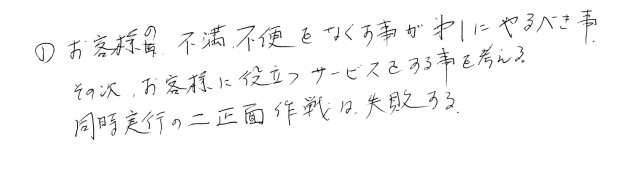 ① お客様の不満、不便をなくす事が第1にやるべき事。
その次、お客様に役立つサービスをする事を考える。
同時実行の二正面作戦は、失敗する。